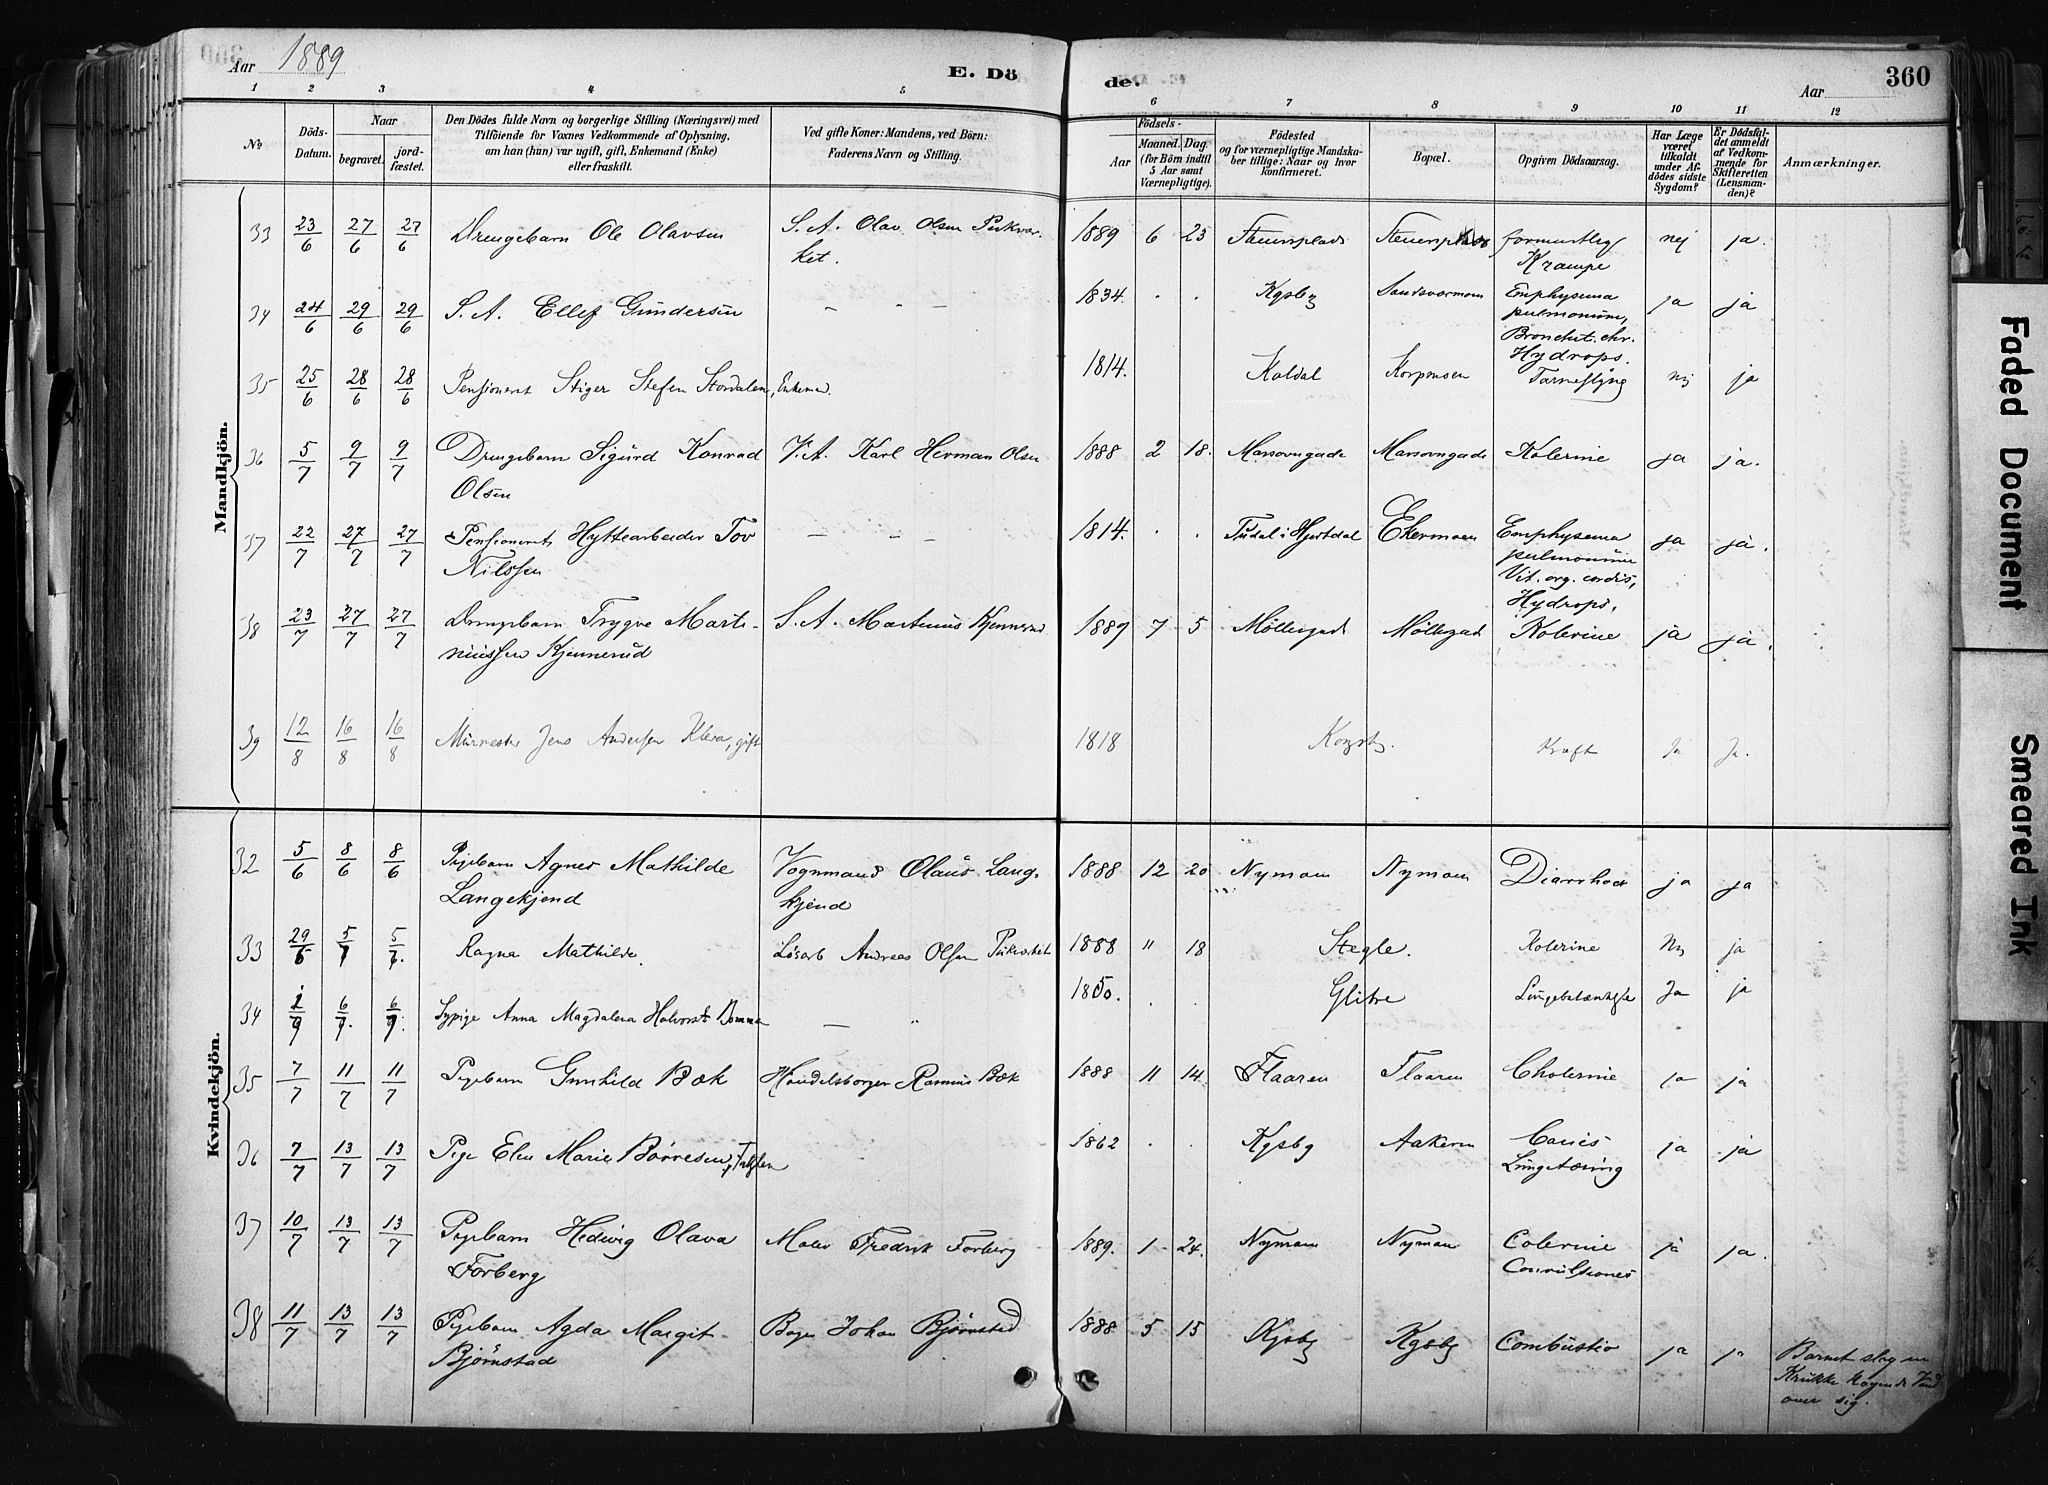 Aar 1889
E. Dö
de.
Aar
360
1 2 3 4 5 6 7 8 9 10 11 12
No
Döds-
Datum.
Naar
begravet.
jord-
fæstet.
Den Dödes fulde Navn og borgerlige Stilling (Næringsvei) med
Tilföiende for Voxnes Vedkommende af Oplysning,
om han (hun) var ugift, gift, Enkemand (Enke)
eller fraskilt.
Ved gifte Koner: Mandens, ved Börn:
Faderens Navn og Stilling.
Födsels-
Aar
Maaned. Dag.
(for Börn indtil
5 Aar samt
Værnepligtige).
Födested
og for værnepligtige Mandska-
ber tillige: Naar og hvor
konfirmeret.
Bopæl.
Opgiven Dödsaarsag.
Har Læge
været
tilkaldt
under Af-
dödes sidste
Sygdom?
Er Dödsfal-
det anmeldt
af Vedkom-
mende for
Skifteretten
(Lensman-
den)?
Anmærkninger.
Mandkjön.
33 23/6 27/6 27/6 Drengebarn Ole Olavsen S. A. Olav Olsen 1889 6 23 nej ja.
ket. Krampe
34 24/6 29/6 29/6 S. A. Ellef Gundersen – – – 1834. . . Kgsby Sandsværmoen Emphysema ja ja
pulmonum,
Bronchit. chr.
Hydrops.
35 25/6 28/6 28/6 Pensioneret Stiger Stefen Stordalen, Enkemd. 1814. Koldal nej ja
36 5/7 9/7 9/7 Drengebarn Sigurd Konrad V. A. Karl Herman Olsen 1888 2 18. Marsovngade Marsovngade Kolerine ja ja.
Olsen
37 22/7 27/7 27/7 Pensioneret Hyttearbeider Tov – – – 1814. . . Tudal i Hjertdal Ekermoen Emphysema ja ja.
Nilssen pulmonum
Vit. org. cordis,
Hydrops,
38 23/7 27/7 27/7 Drengebarn Trygve Marti- S. A. Martinius Kjennerud 1889 7 5 Möllergad Möllergad Kolerine ja ja.
niussen Kjennerud
39 12/8 16/8 16/8 Murmester Jens Andersen Klera, gift 1818 Kongsbg. Kræft Ja Ja.
Kvindekjön.
32 5/6 8/6 8/6 Pigebarn Agnes Mathilde Vognmand Olaus Lang- 1888 12 20 Nymoen Nymoen Diarrhoe ja ja
Langekjend kjend
33 29/6 5/7 5/7. Ragna Mathilde. Løsarb Andreas Olsen 1888 11 18 Stegle. Kolerine Nej ja
34 6/7. Sypige Anna Magdalena Halvorsdt – „ 1850. . . Glitre Lungebetændelse Ja ja
35 7/7 11/7 11/7 Pigebarn Gunhild Bæk Handelsborger Rasmus Bæk 1888 11 14. Flaaren Flaaren Cholerine ja ja
36 7/7 13/7 13/7 Pige Elen Marie Børresen, 1862 . . Kgsbg Aakeren Caries ja ja
Lungetæring
37 10/7 13/7 13/7 Pigebarn Hedvig Olava Maler Fredrik Forberg 1889. 1 24. Nymoen Nymoen Colerine ja ja.
Forberg Convulsiones
38 11/7 13/7 13/7 Pigebarn Agda Margit Bager Johan Bjørnstad 1888 5 15 Kgsbg Kgsbg Combustio ja ja Barnet slog en
Bjørnstad Krukke kogende Vand
over sig.
Faded Document
Smeared Ink